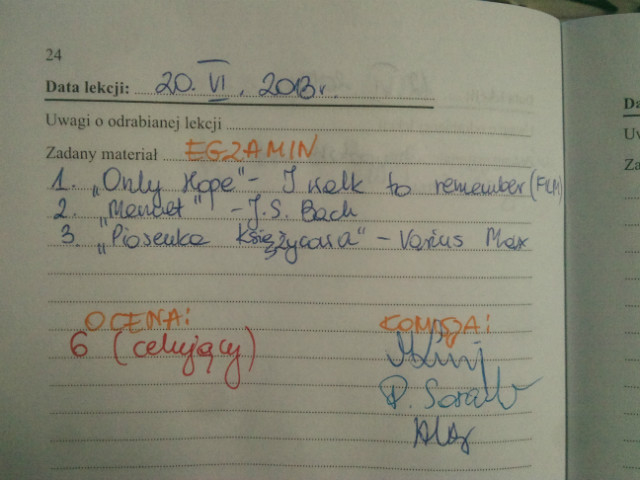 24
Data lekcji: 20. VI. 2013r.
Uwagi o odrabianej lekcji
Zadany materiał EGZAMIN
1. „Only Hope" - I walk to remember (FILM)
2. „Menuet" - J.S. Bach
3. „Piosenka księżycowa" - Varius Manx
OCENA: KOMISJA:
6 (celujący)
P.
Da
Uw
Za